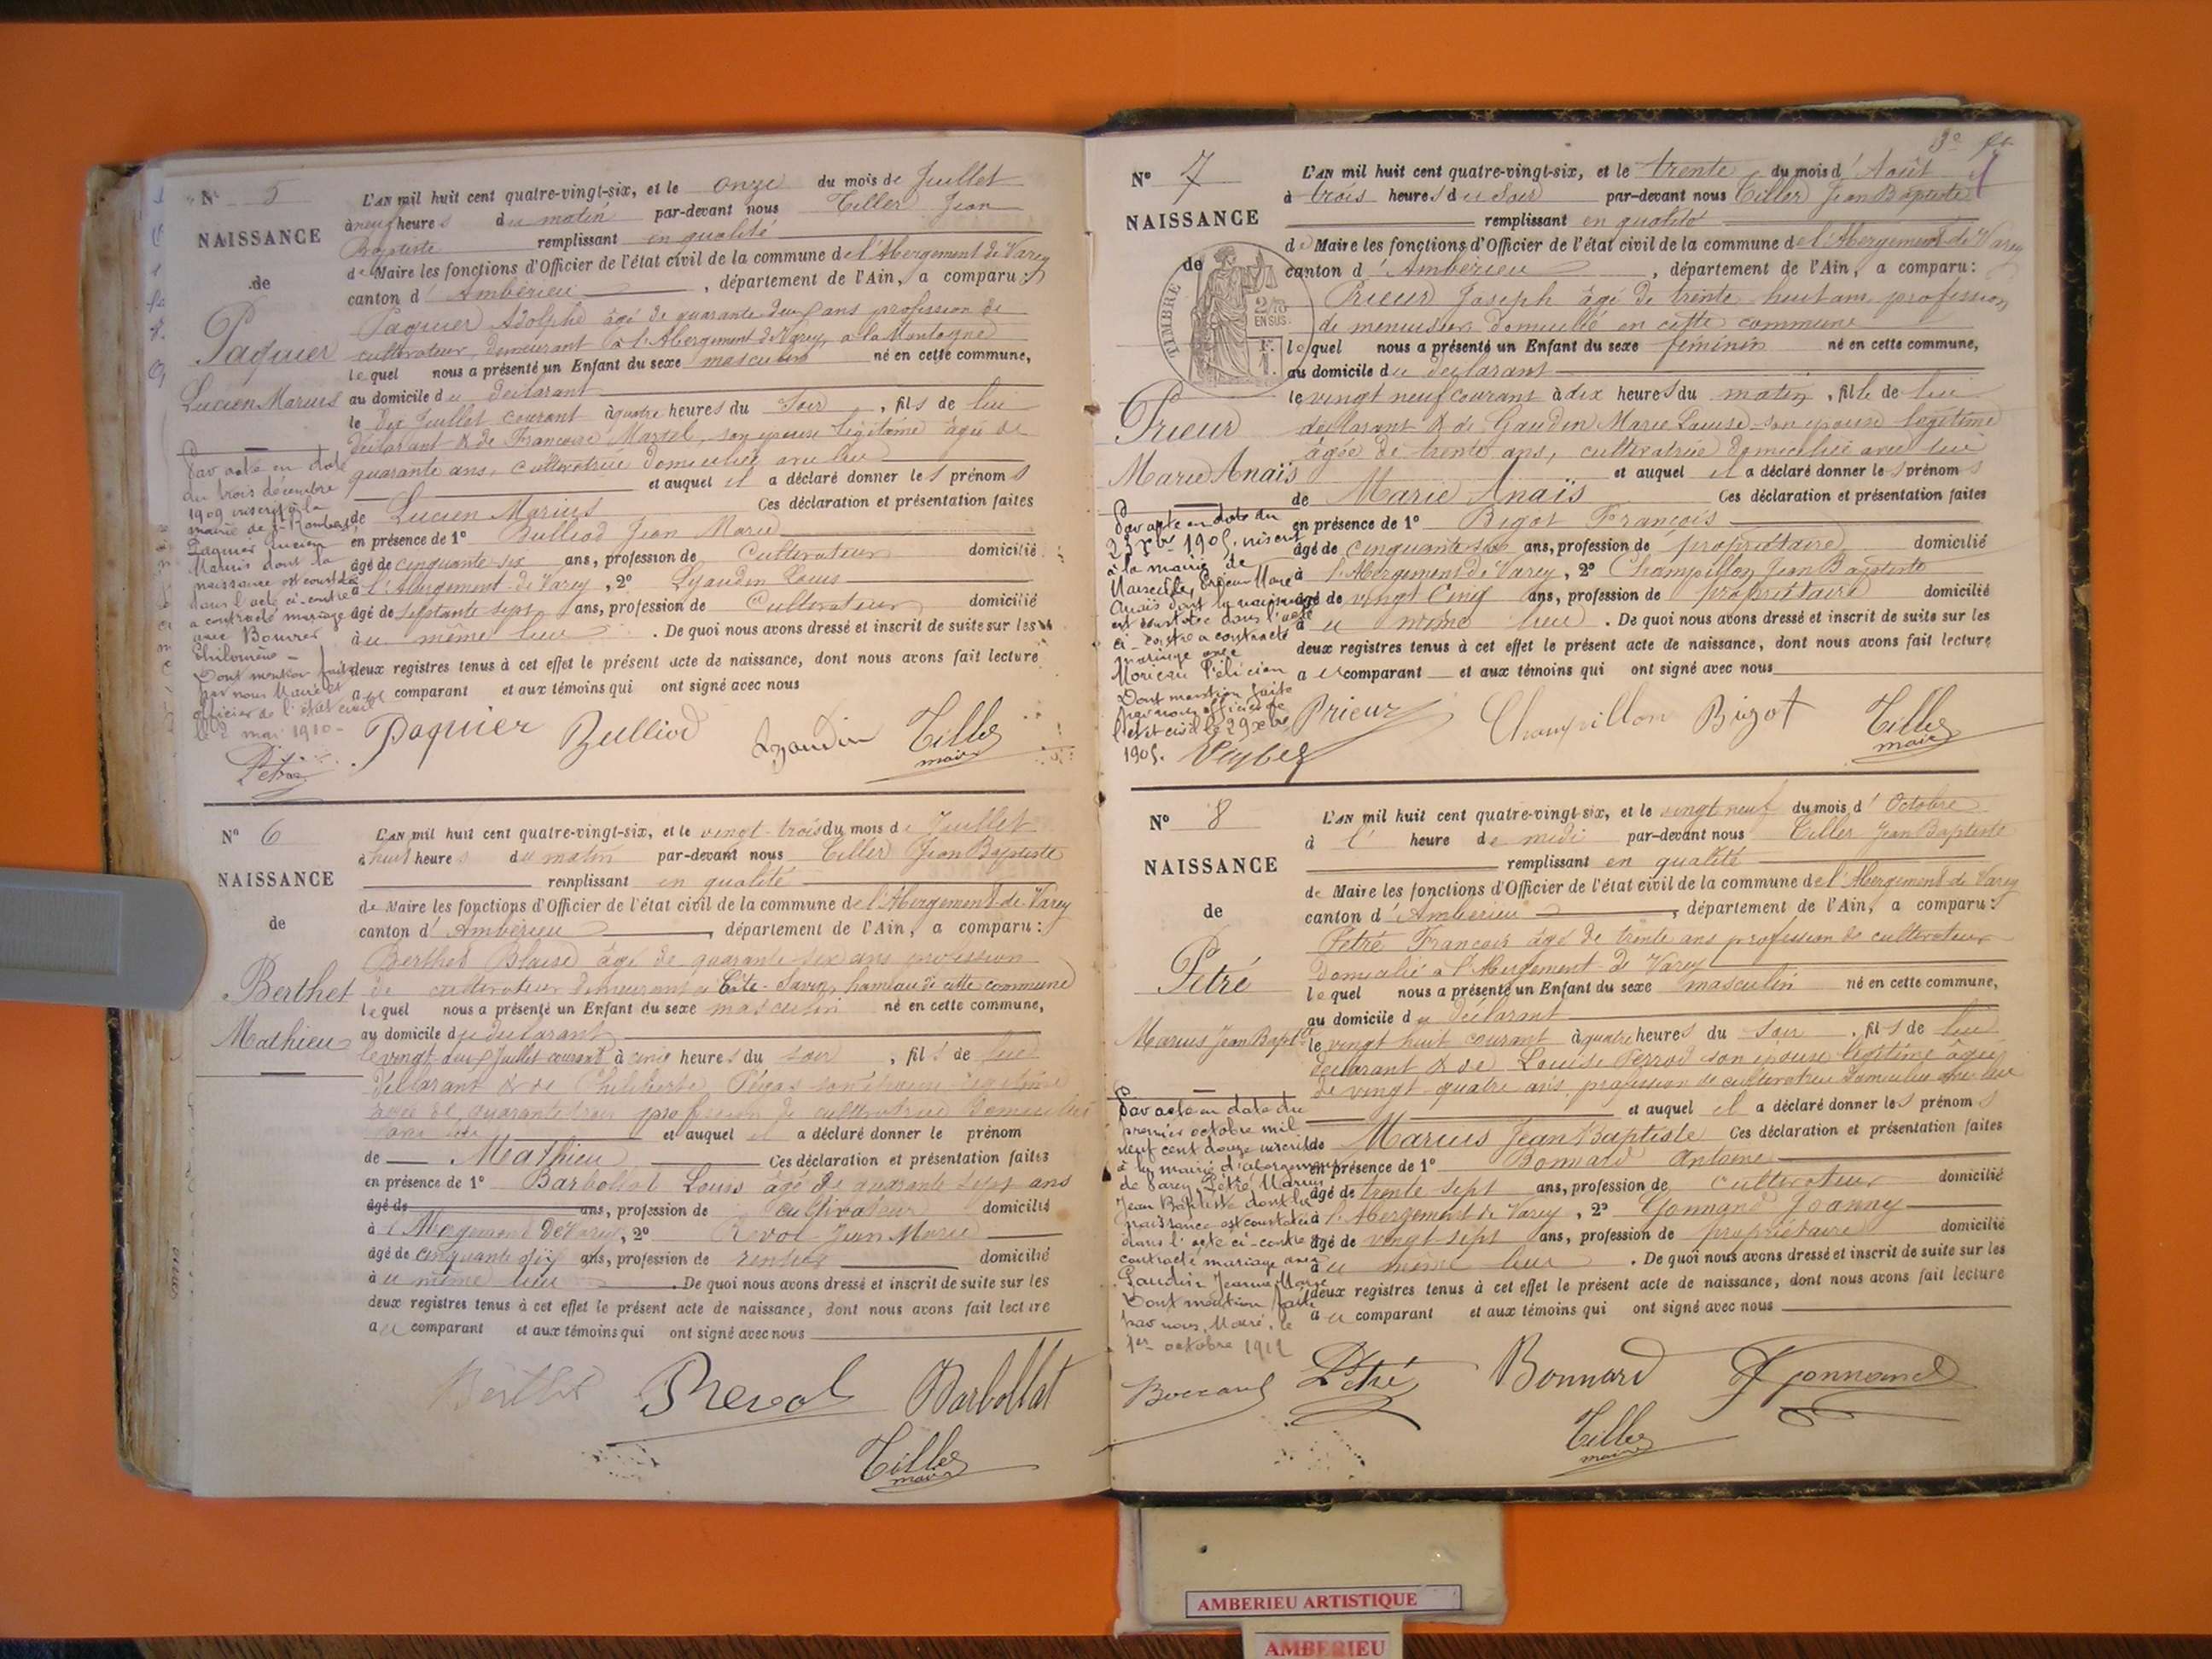 N° 5
NAISSANCE
de
Paquier
Lucien Marius
L'AN mil huit cent quatre-vingt-six, et le onze du mois de Juillet
à neuf heures du matin par-devant nous Tiller Jean
Baptiste remplissant en qualité
de Maire les fonctions d'Officier de l'état civil de la commune de l'Abergement de Varey
canton d'Ambérieu, département de l'Ain, a comparu :
Paquier Adolphe âgé de quarante deux ans profession de
cultivateur, demeurant à l'Abergement de Varey, à la Montagne
lequel nous a présenté un Enfant du sexe masculin né en cette commune,
au domicile du déclarant
le dix Juillet courant à quatre heures du soir, fils de lui
déclarant & de Françoise Martel, son épouse légitime âgée de
quarante ans, cultivatrice domiciliée avec lui
et auquel il a déclaré donner les prénoms
de Lucien Marius Ces déclaration et présentation faites
en présence de 1° Bulliod Jean Marie
âgé de cinquante six ans, profession de Cultivateur domicilié
à l'Abergement de Varey, 2° Lyaudin Louis
âgé de septante sept ans, profession de Cultivateur domicilié
au même lieu. De quoi nous avons dressé et inscrit de suite sur les
deux registres tenus à cet effet le présent acte de naissance, dont nous avons fait lecture
au comparant et aux témoins qui ont signé avec nous
Par acte en date
du trois décembre
1909 inscrit à la
mairie de St Rambert
Paquier Lucien
Marius dont la
naissance est constatée
dans l'acte ci-contre
a contracté mariage
avec Bouvier
Philomène
Dont mention faite
par nous Maire et
officier de l'état civil
le 2 mai 1910
Paquier Bulliod Lyaudin Tiller
maire
N° 6
NAISSANCE
de
Berthet
Mathieu
L'AN mil huit cent quatre-vingt-six, et le vingt-trois du mois de Juillet
à huit heures du matin par-devant nous Tiller Jean Baptiste
remplissant en qualité
de Maire les fonctions d'Officier de l'état civil de la commune de l'Abergement de Varey
canton d'Ambérieu, département de l'Ain, a comparu :
Berthet Blaise âgé de quarante six ans profession
de cultivateur demeurant à Côte-Savin, hameau de cette commune
lequel nous a présenté un Enfant du sexe masculin né en cette commune,
au domicile du déclarant
le vingt deux Juillet courant à cinq heures du soir, fils de lui
déclarant & de Philiberte son épouse légitime
âgée de quarante trois profession de cultivatrice domiciliée
avec lui et auquel il a déclaré donner le prénom
de Mathieu Ces déclaration et présentation faites
en présence de 1° Barbollat Louis âgé de quarante sept ans
âgé de ans, profession de cultivateur domicilié
à l'Abergement de Varey, 2° Revol Jean Marie
âgé de cinquante six ans, profession de rentier domicilié
au même lieu. De quoi nous avons dressé et inscrit de suite sur les
deux registres tenus à cet effet le présent acte de naissance, dont nous avons fait lecture
au comparant et aux témoins qui ont signé avec nous
Berthet Revol Barbollat
Tiller
maire
N° 7
NAISSANCE
de
TIMBRE
2/10
EN SUS
Prieur
Marie Anaïs
L'AN mil huit cent quatre-vingt-six, et le trente du mois d'Août
à trois heures du soir par-devant nous Tiller Jean Baptiste
remplissant en qualité
de Maire les fonctions d'Officier de l'état civil de la commune de l'Abergement de Varey
canton d'Ambérieu, département de l'Ain, a comparu :
Prieur Joseph âgé de trente huit ans profession
de menuisier domicilié en cette commune
lequel nous a présenté un Enfant du sexe féminin né en cette commune,
au domicile du déclarant
le vingt neuf courant à dix heures du matin, fille de lui
déclarant & de Gaudin Marie Louise son épouse légitime
âgée de trente ans, cultivatrice domiciliée avec lui
et auquel il a déclaré donner les prénoms
de Marie Anaïs Ces déclaration et présentation faites
en présence de 1° Bigot François
âgé de cinquante six ans, profession de propriétaire domicilié
à l'Abergement de Varey, 2° Champillon Jean Baptiste
âgé de vingt cinq ans, profession de propriétaire domicilié
au même lieu. De quoi nous avons dressé et inscrit de suite sur les
deux registres tenus à cet effet le présent acte de naissance, dont nous avons fait lecture
au comparant et aux témoins qui ont signé avec nous
Par acte en date du
23 xbre 1905, inscrit
à la mairie de
Marseille, Prieur Marie
Anaïs dont la naissance
est constatée dans l'acte
ci-contre a contracté
mariage avec
Félicien
Dont mention faite
par nous officier de
l'état civil le 29 xbre
1905.
Prieur Champillon Bigot Tiller
maire
N° 8
NAISSANCE
de
Pétré
Marius Jean Bapte
L'AN mil huit cent quatre-vingt-six, et le vingt neuf du mois d'Octobre
à l' heure de midi par-devant nous Tiller Jean Baptiste
remplissant en qualité
de Maire les fonctions d'Officier de l'état civil de la commune de l'Abergement de Varey
canton d'Ambérieu, département de l'Ain, a comparu :
Pétré François âgé de trente ans profession de cultivateur
domicilié à l'Abergement de Varey
lequel nous a présenté un Enfant du sexe masculin né en cette commune,
au domicile du déclarant
le vingt huit courant à quatre heures du soir, fils de lui
déclarant & de Louise Perrod son épouse légitime âgée
de vingt quatre ans profession de cultivatrice domiciliée avec lui
et auquel il a déclaré donner les prénoms
de Marius Jean Baptiste Ces déclaration et présentation faites
en présence de 1° Bonnard Antoine
âgé de trente sept ans, profession de cultivateur domicilié
à l'Abergement de Varey, 2° Gonnand Joanny
âgé de vingt sept ans, profession de propriétaire domicilié
au même lieu. De quoi nous avons dressé et inscrit de suite sur les
deux registres tenus à cet effet le présent acte de naissance, dont nous avons fait lecture
au comparant et aux témoins qui ont signé avec nous
Par acte en date du
premier octobre mil
neuf cent douze inscrit
à la mairie d'abergement
de Varey Pétré Marius
Jean Baptiste dont la
naissance est constatée
dans l'acte ci-contre a
contracté mariage avec
Gaudin Jeanne Marie
Dont mention faite
par nous, Maire, le
1er octobre 1912
Pétré Bonnard Gonnand
Tiller
maire
AMBERIEU ARTISTIQUE
AMBERIEU